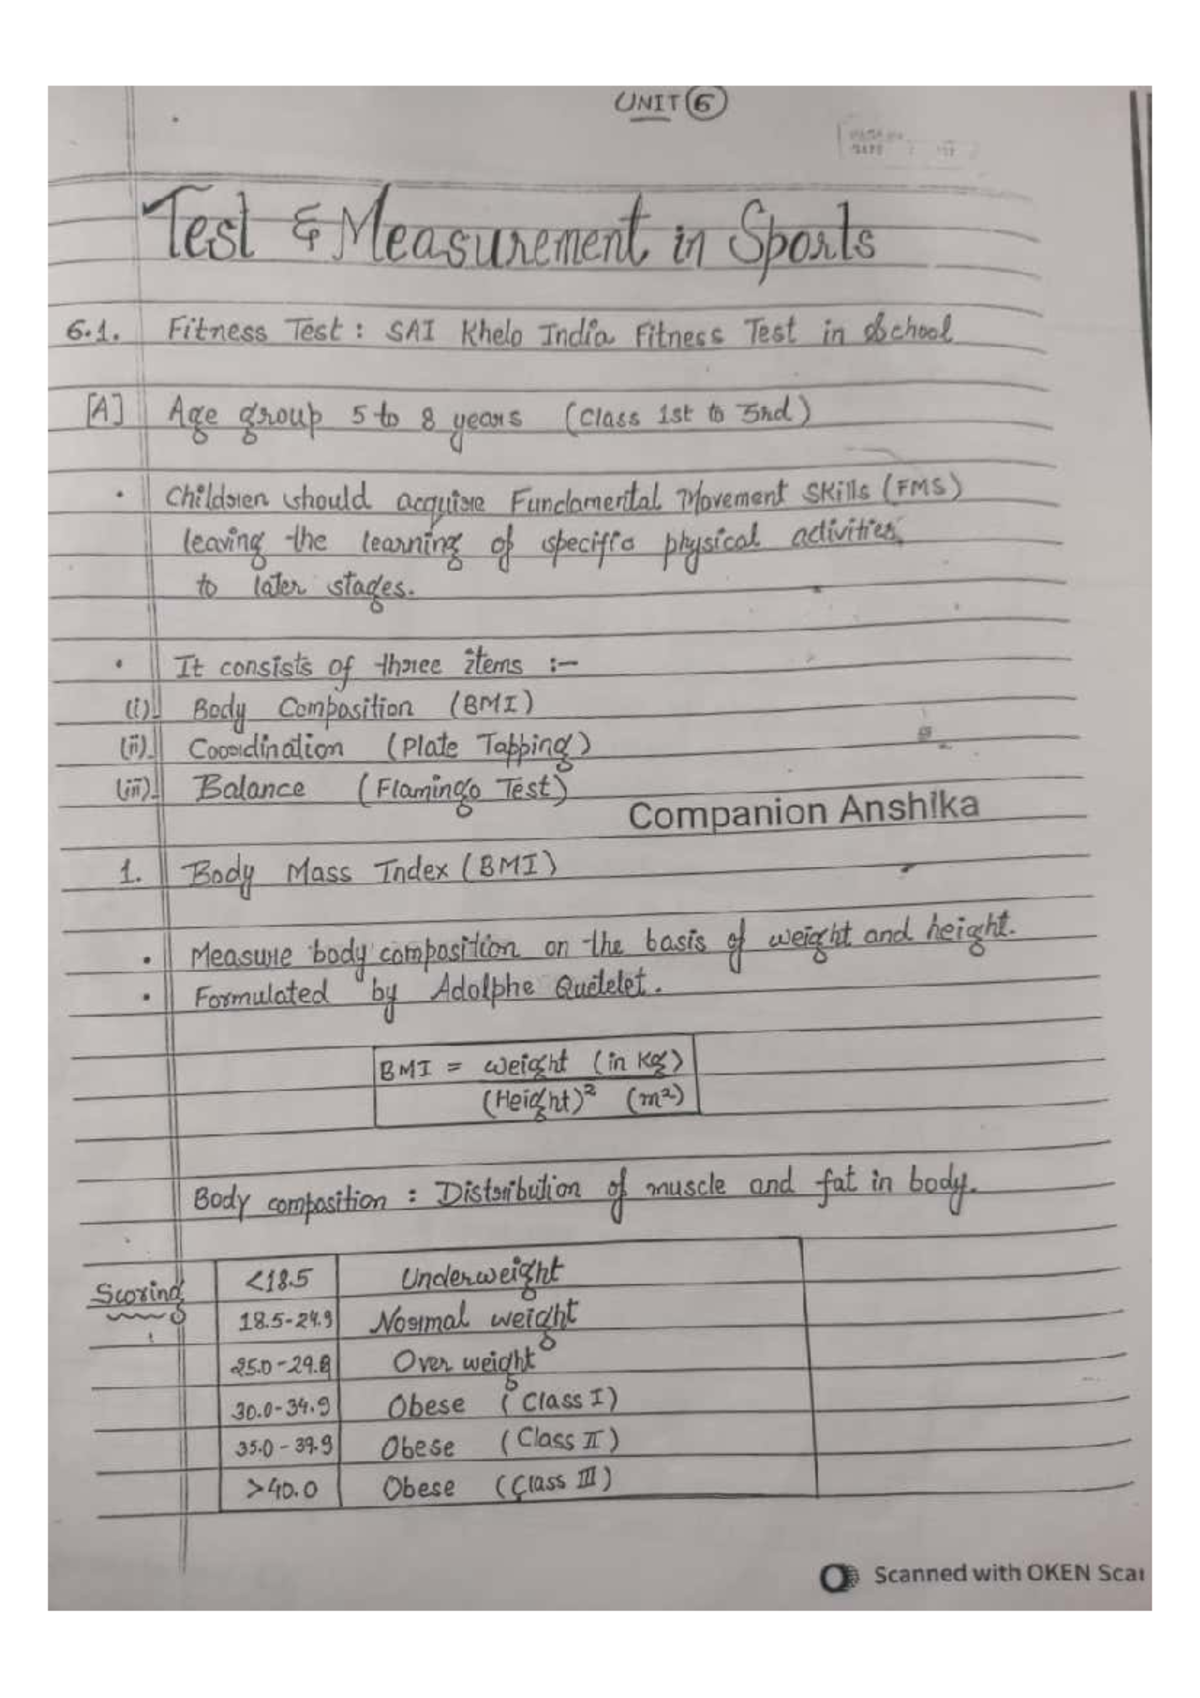 UNIT 6
Test & Measurement in Sports
6.1. Fitness Test : SAI Khelo India Fitness Test in School
[A] Age group 5 to 8 years (Class 1st to 3rd)
• Children should acquire Fundamental Movement Skills (FMS)
leaving the learning of specific physical activities
to later stages.
• It consists of three items :-
(i) Body Composition (BMI)
(ii) Coordination (Plate Tapping)
(iii) Balance (Flamingo Test)
Companion Anshika
1. Body Mass Index (BMI)
• Measure body composition on the basis of weight and height.
• Formulated by Adolphe Quetelet.
BMI = Weight (in Kg)
(Height)² (m²)
Body composition : Distribution of muscle and fat in body.
Scoring <18.5 Underweight
18.5-24.9 Normal weight
25.0-29.9 Over weight
30.0-34.9 Obese (Class I)
35.0-39.9 Obese (Class II)
>40.0 Obese (Class III)
Scanned with OKEN Scan